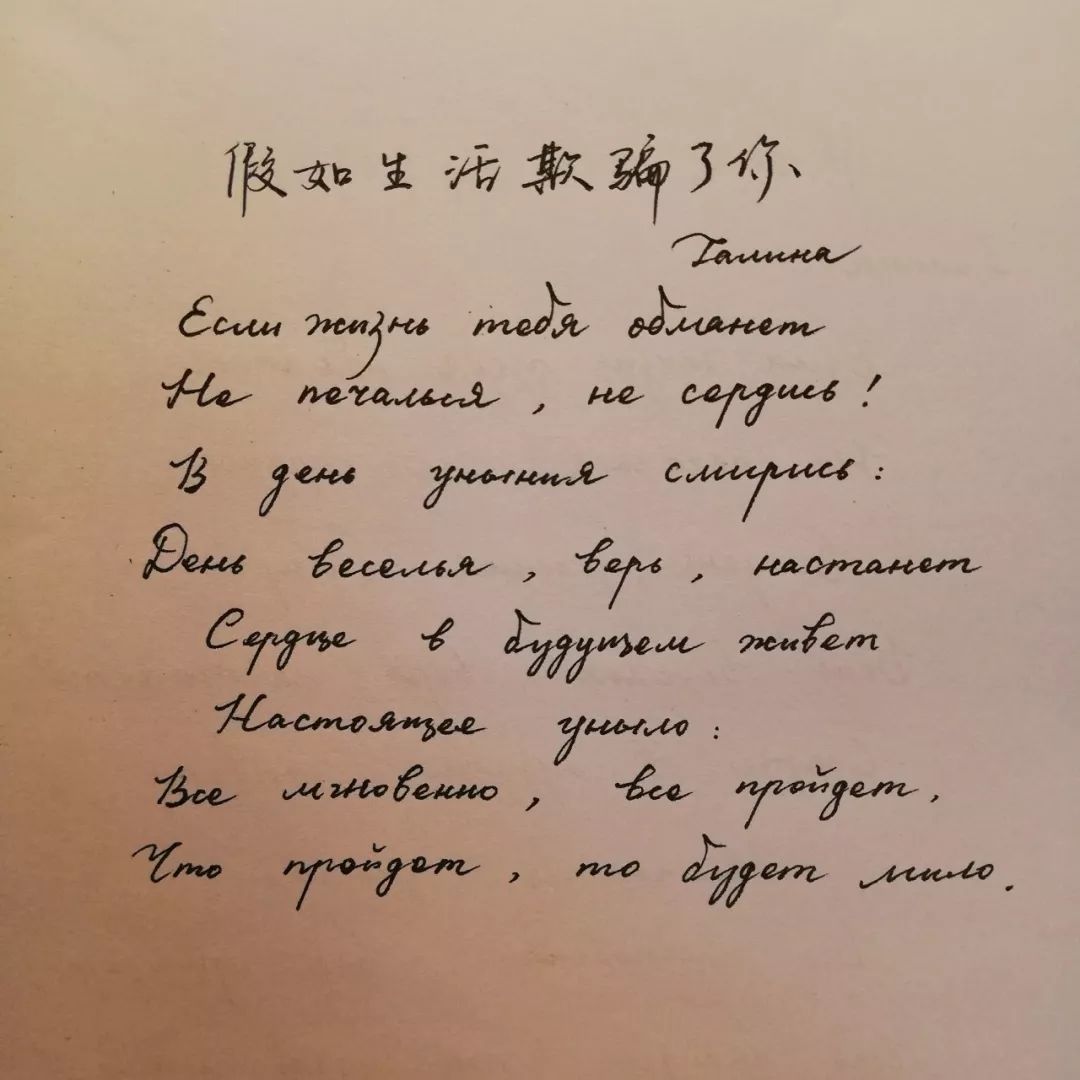 假如生活欺骗了你、
Галина
Если жизнь тебя обманет
Не печалься, не сердись!
В день уныния смирись:
День веселья, верь, настанет
Сердце в будущем живет
Настоящее уныло:
Все мгновенно, все пройдет,
Что пройдет, то будет мило.